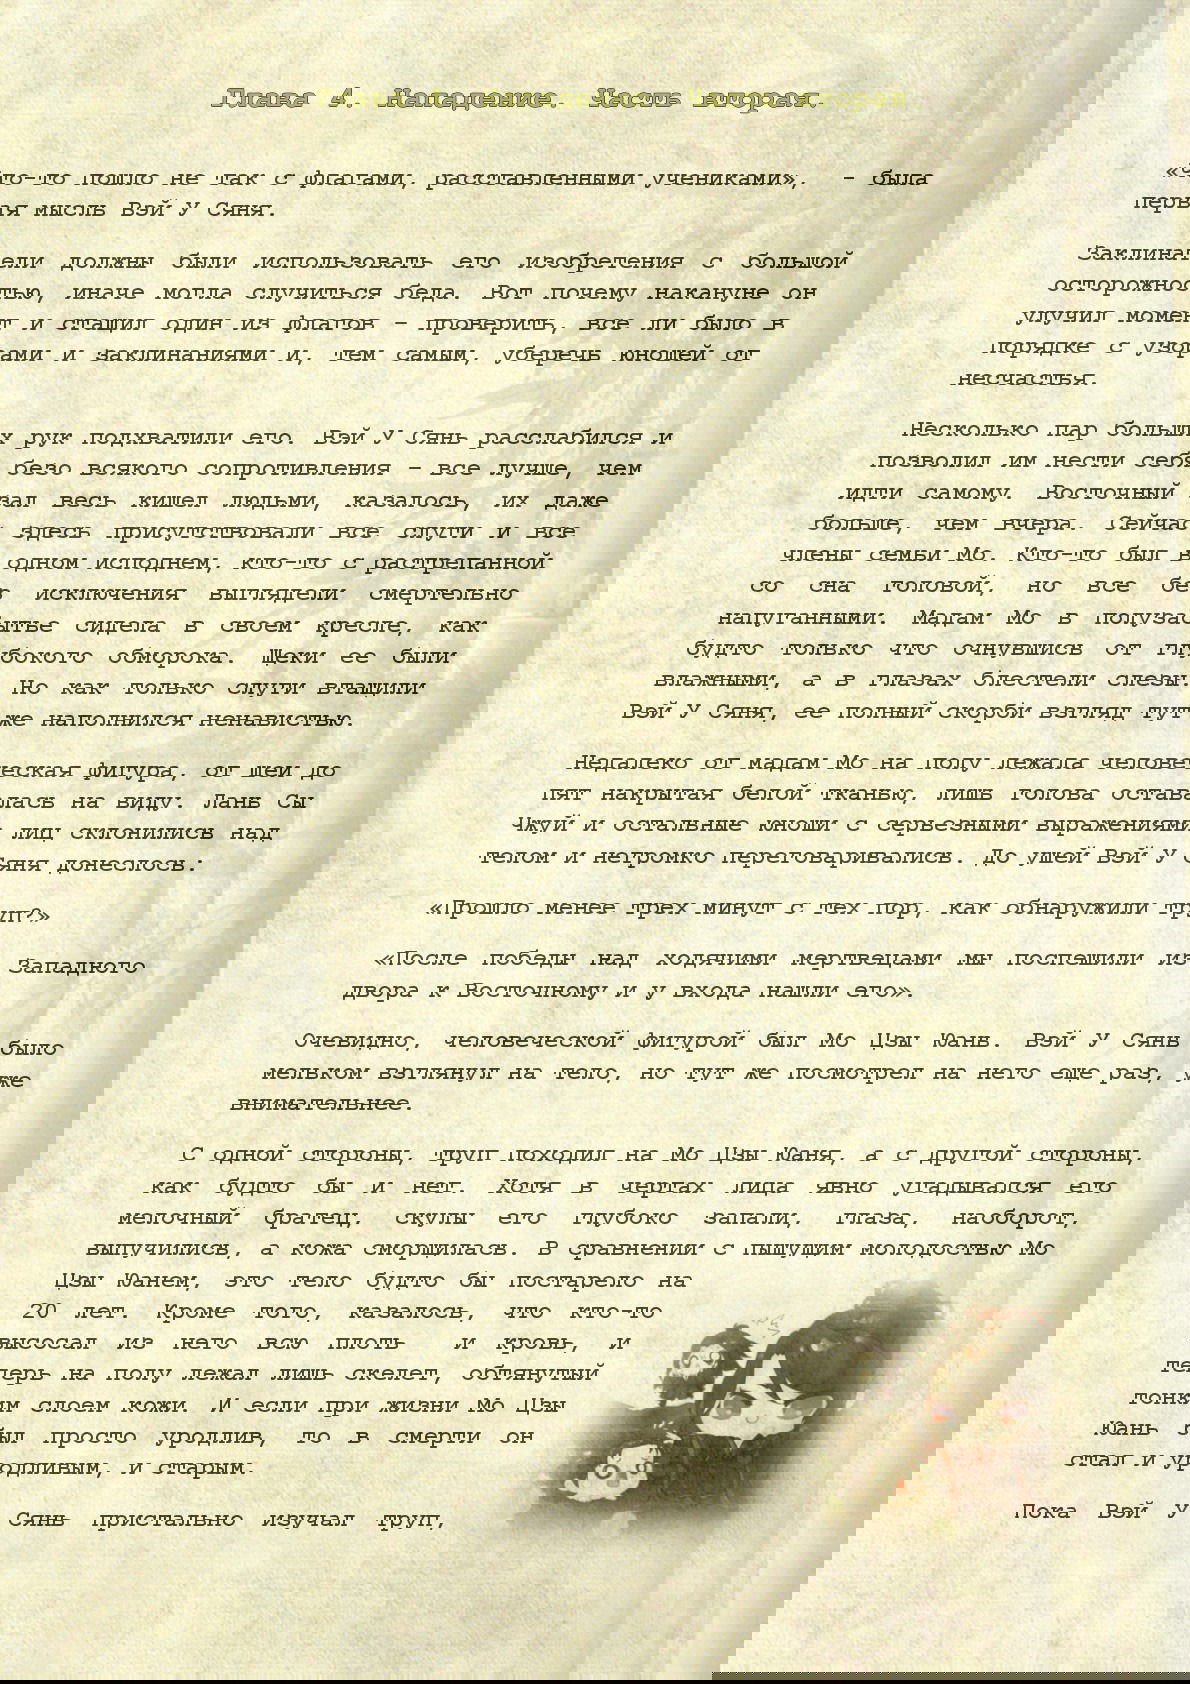 Глава 4. Нападение. Часть вторая.
«Что-то пошло не так с флагами, расставленными учениками», – была
первая мысль Вэй У Сяня.
Заклинатели должны были использовать его изобретения с большой
осторожностью, иначе могла случиться беда. Вот почему накануне он
улучил момент и стащил один из флагов – проверить, все ли было в
порядке с узорами и заклинаниями и, тем самым, уберечь юношей от
несчастья.
Несколько пар больших рук подхватили его. Вэй У Сянь расслабился и
позволил им нести себя безо всякого сопротивления – все лучше, чем
идти самому. Восточный зал весь кишел людьми, казалось, их даже
больше, чем вчера. Сейчас здесь присутствовали все слуги и все
члены семьи Мо. Кто-то был в одном исподнем, кто-то с растрепанной
со сна головой, но все без исключения выглядели смертельно
напуганными. Мадам Мо в полузабытье сидела в своем кресле, как
будто только что очнувшись от глубокого обморока. Щеки ее были
влажными, а в глазах блестели слезы. Но как только слуги втащили
Вэй У Сяня, ее полный скорби взгляд тут же наполнился ненавистью.
Недалеко от мадам Мо на полу лежала человеческая фигура, от шеи до
пят накрытая белой тканью, лишь голова оставалась на виду. Лань Сы
Чжуй и остальные юноши с серьезными выражениями лиц склонились над
телом и негромко переговаривались. До ушей Вэй У Сяня донеслось:
«Прошло менее трех минут с тех пор, как обнаружили труп?»
«После победы над ходячими мертвецами мы поспешили из Западного
двора к Восточному и у входа нашли его».
Очевидно, человеческой фигурой был Мо Цзы Юань. Вэй У Сянь было
мельком взглянул на тело, но тут же посмотрел на него еще раз, уже
внимательнее.
С одной стороны, труп походил на Мо Цзы Юаня, а с другой стороны,
как будто бы и нет. Хотя в чертах лица явно угадывался его
мелочный братец, скулы его глубоко запали, глаза, наоборот,
выпучились, а кожа сморщилась. В сравнении с пышущим молодостью Мо
Цзы Юанем, это тело будто бы постарело на
20 лет. Кроме того, казалось, что кто-то
высосал из него всю плоть и кровь, и
теперь на полу лежал лишь скелет, обтянутый
тонким слоем кожи. И если при жизни Мо Цзы
Юань был просто уродлив, то в смерти он
стал и уродливым, и старым.
Пока Вэй У Сянь пристально изучал труп,